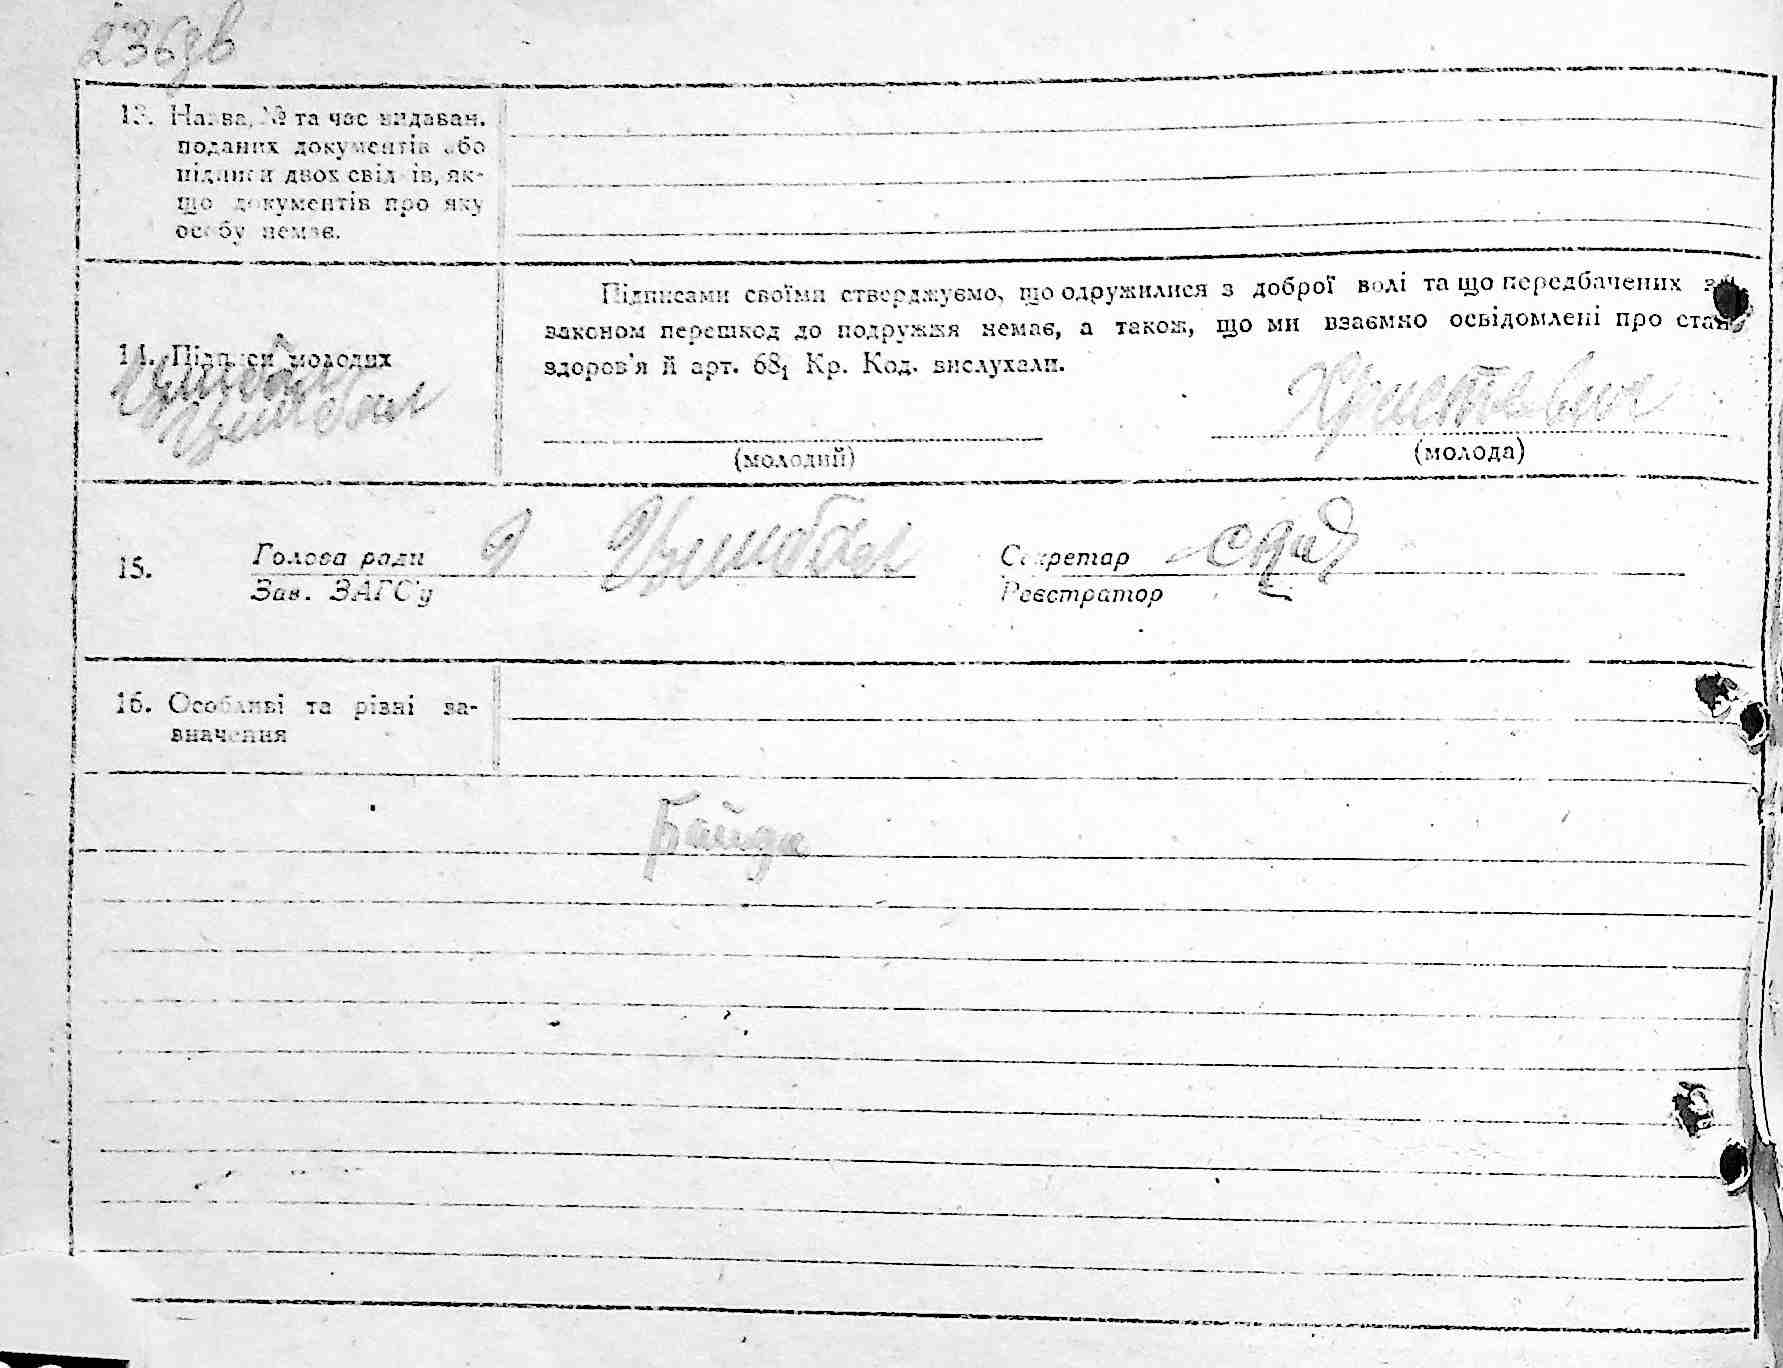 236зв
13. Назва, № та час видаван.
поданих документів або
підписи двох свідків, як-
що документів про яку
особу немає.
Підписами своїми стверджуємо, що одружилися з доброї волі та що передбачених за
законом перешкод до подружжя немає, а також, що ми взаємно освідомлені про стан
здоров'я й арт. 68₁ Кр. Код. вислухали.
14. Підписи молодих
Цимбал
Цимбал
Христевич
(молодий) (молода)
15. Голова ради Цимбал Секретар
Зав. ЗАГС'у Реєстратор
16. Особливі та різні за-
значення
Байда